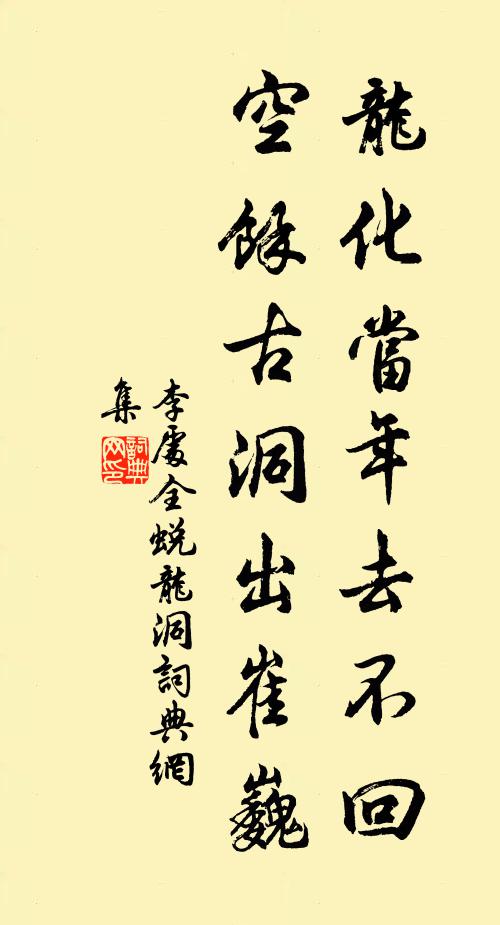 龍化當年去不回
空餘古洞出崔巍
李處全蛻龍洞詞典網
集
詞典网印